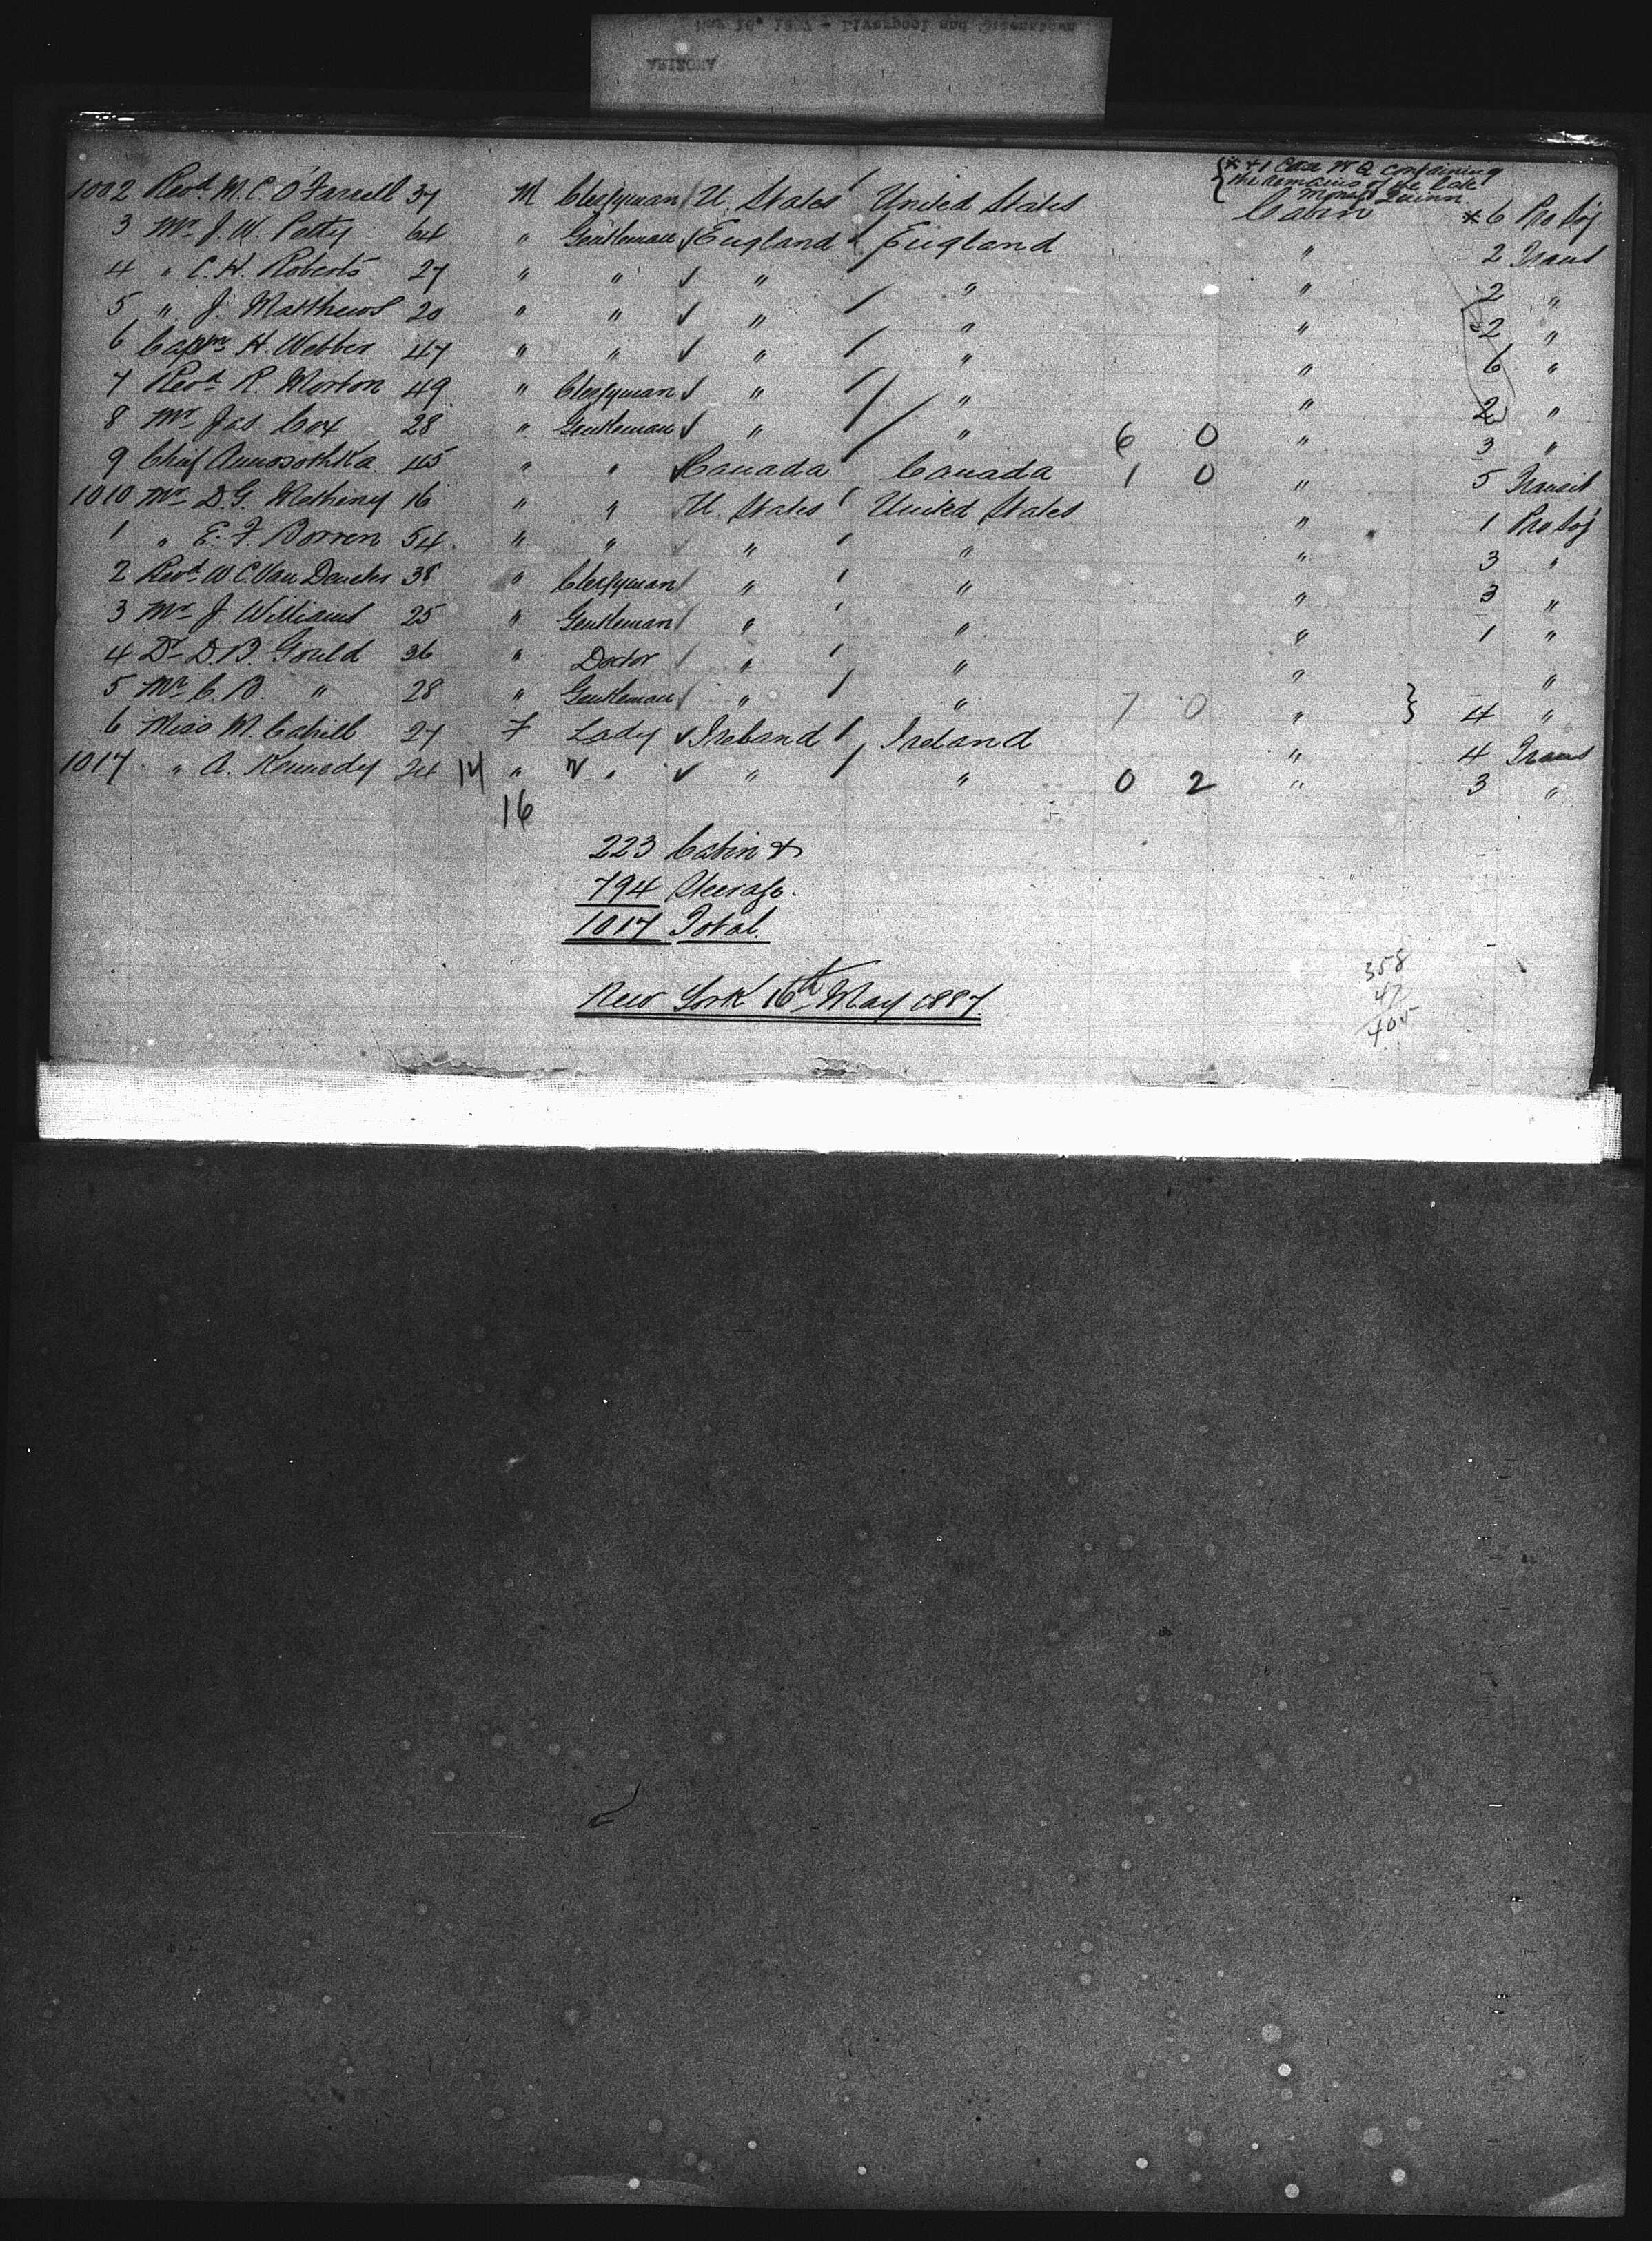 May 16, 1887 - Liverpool and Queenstown
ARIZONA
{* + 1 Case W Q containing
the remains of the late
Monsr Quinn.
1002 Revd. M. C. O'Farrell 37 M Clergyman U. States United States Cabin * 6 Pro Soj
3 Mr J. W. Petty 64 " Gentleman England England " 2 Trans
4 " C. H. Roberts 27 " " " " " 2 "
5 " J. Matthews 20 " " " " " 2 "
6 Captn H. Webber 47 " " " " " 6 "
7 Revd. R. Morton 49 " Clergyman " " " 2 "
8 Mr Jas Cox 28 " Gentleman " " 6 0 " 3 "
9 Chief 45 " " Canada Canada 1 0 " 5 Transit
1010 Mr D. G. Metheny 16 " " U. States United States " 1 Pro Soj
1 " E. F. Borren 54 " " " " " 3 "
2 Revd. W. C. Van 38 " Clergyman " " " 3 "
3 Mr J. Williams 25 " Gentleman " " " 1 "
4 Dr D. B. Gould 36 " Doctor " " " "
5 Mr C. B. " 28 " Gentleman " " 7 0 " } 4 "
6 Miss M. Cahill 27 F Lady Ireland Ireland " 4 Trans
1017 " A. Kennedy 24 14 " " " " 0 2 " 3 "
16
223 Cabin &
794 Steerage.
1017 Total.
New York 16th May 1887.
358
47
405